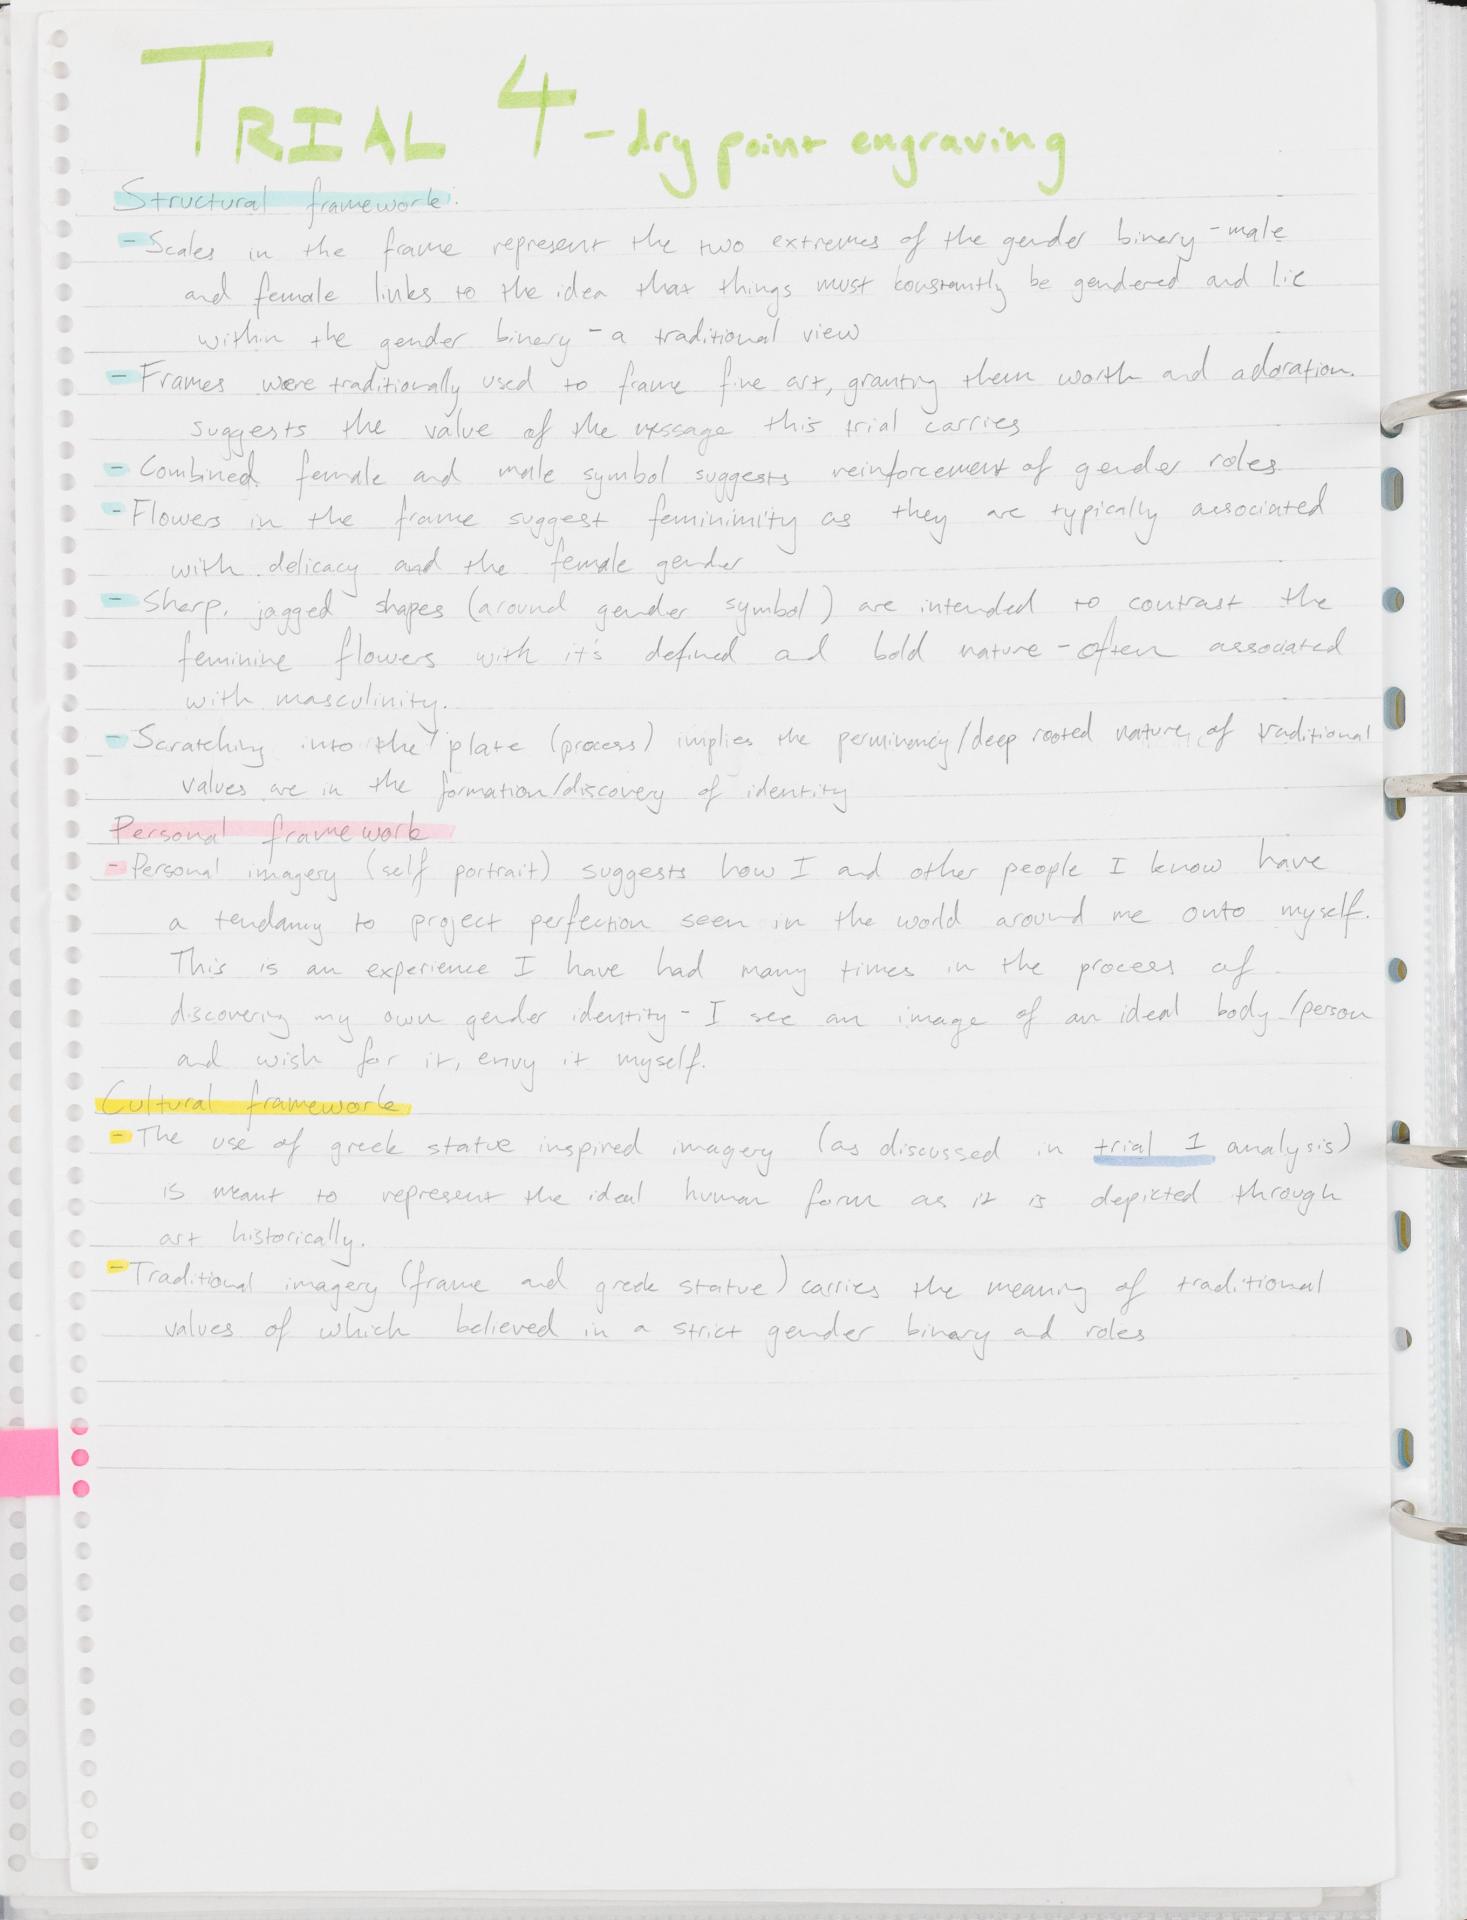 TRIAL 4 - dry point engraving
Structural framework:
- Scales in the frame represent the two extremes of the gender binary - male
and female links to the idea that things must constantly be gendered and lie
within the gender binary - a traditional view
- Frames were traditionally used to frame fine art, granting them worth and adoration.
suggests the value of the message this trial carries
- Combined female and male symbol suggests reinforcement of gender roles
- Flowers in the frame suggest feminimity as they are typically associated
with delicacy and the female gender
- Sharp, jagged shapes (around gender symbol) are intended to contrast the
feminine flowers with it's defined ad bold nature - often associated
with masculinity.
- Scratching into the plate (process) implies the perminency/deep rooted nature of traditional
values are in the formation/discovery of identity
Personal framework
- Personal imagery (self portrait) suggests how I and other people I know have
a tendancy to project perfection seen in the world around me onto myself.
This is an experience I have had many times in the process of
discovering my own gender identity - I see an image of an ideal body/person
and wish for it, envy it myself.
Cultural framework
- The use of greek statue inspired imagery (as discussed in trial 1 analysis)
is meant to represent the ideal human form as it is depicted through
art historically.
- Traditional imagery (frame and greek statue) carries the meaning of traditional
values of which believed in a strict gender binary ad roles